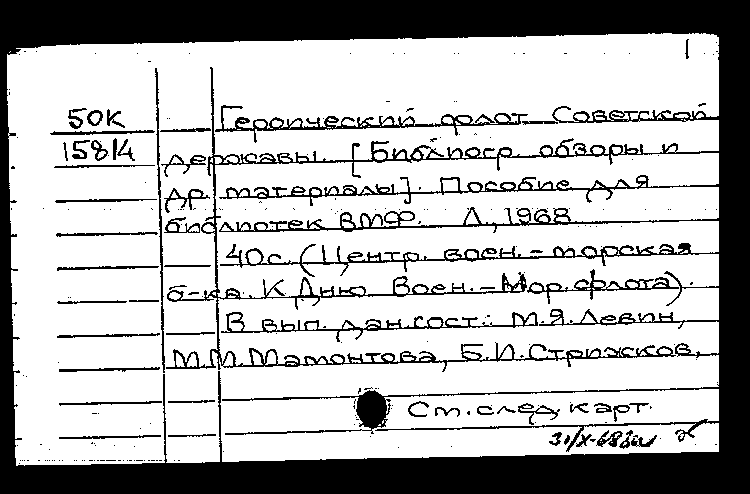 50К Героический флот Советской
15814 державы. [Библиогр. обзоры и
др. материалы]. Пособие для
библиотек ВМФ. Л., 1968.
40с. (Центр. воен.-морская
б-ка. К Дню Воен.-Мор. флота).
В вып. дан. сост.: М.Я. Левин,
М.М. Мамонтова, Б.И. Стрижков,
См. след. карт.